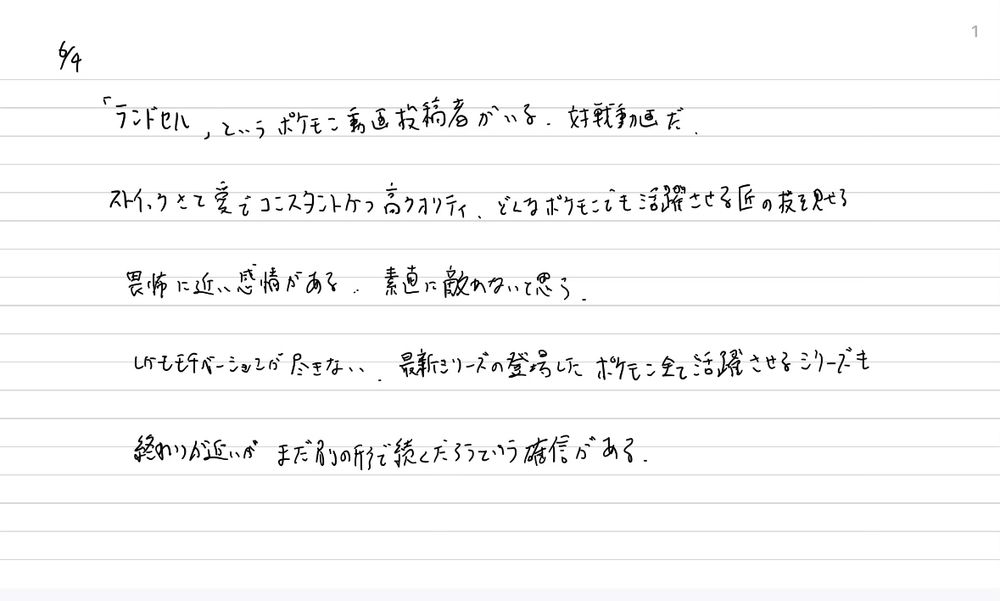 1
6/4
「ランドセル」というポケモン動画投稿者がいる. 対戦動画だ.
ストイックさて愛でコンスタントかつ高クオリティ、どんなポケモンでも活躍させる匠の技を見せる
畏怖に近い感情がある. 素直に敵わないと思う.
しかもモチベーションが尽きない、. 最新シリーズの登場したポケモン全て活躍させるシリーズも
終わりが近いが まだ別の形で続くだろうという確信がある.